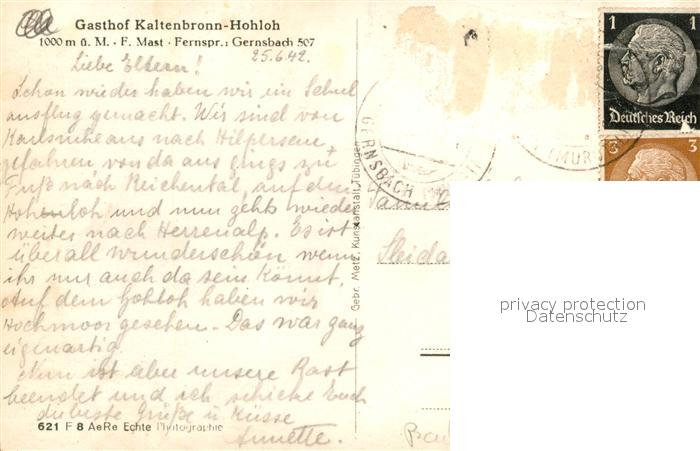 Gasthof Kaltenbronn-Hohloh
1000 m ü. M. · F. Mast · Fernspr.: Gernsbach 507
25.6.42.
Liebe Eltern!
Schon wieder haben wir ein Schul
ausflug gemacht. Wir sind von
Karlsruhe aus nach Hilpersau
gefahren von da aus gings zu
Fuß nach Reichental, auf den
Hohloh und nun gehts wieder
weiter nach Herrenalp. Es ist
überall wunderschön wenn
ihr nur auch da sein könnt.
Auf dem Hohloh haben wir
Hochmoor gesehen. Das war ganz
eigenartig.
Nun ist aber unsere Rast
beendet und ich schicke Euch
die beste Grüße u. Küsse
Annette.
621 F 8 AeRe Echte Photographie
Gebr. Metz, Kunstanstalt, Tübingen
GERNSBACH
(MURG
1 1
Deutsches Reich
3 3
privacy protection
Datenschutz